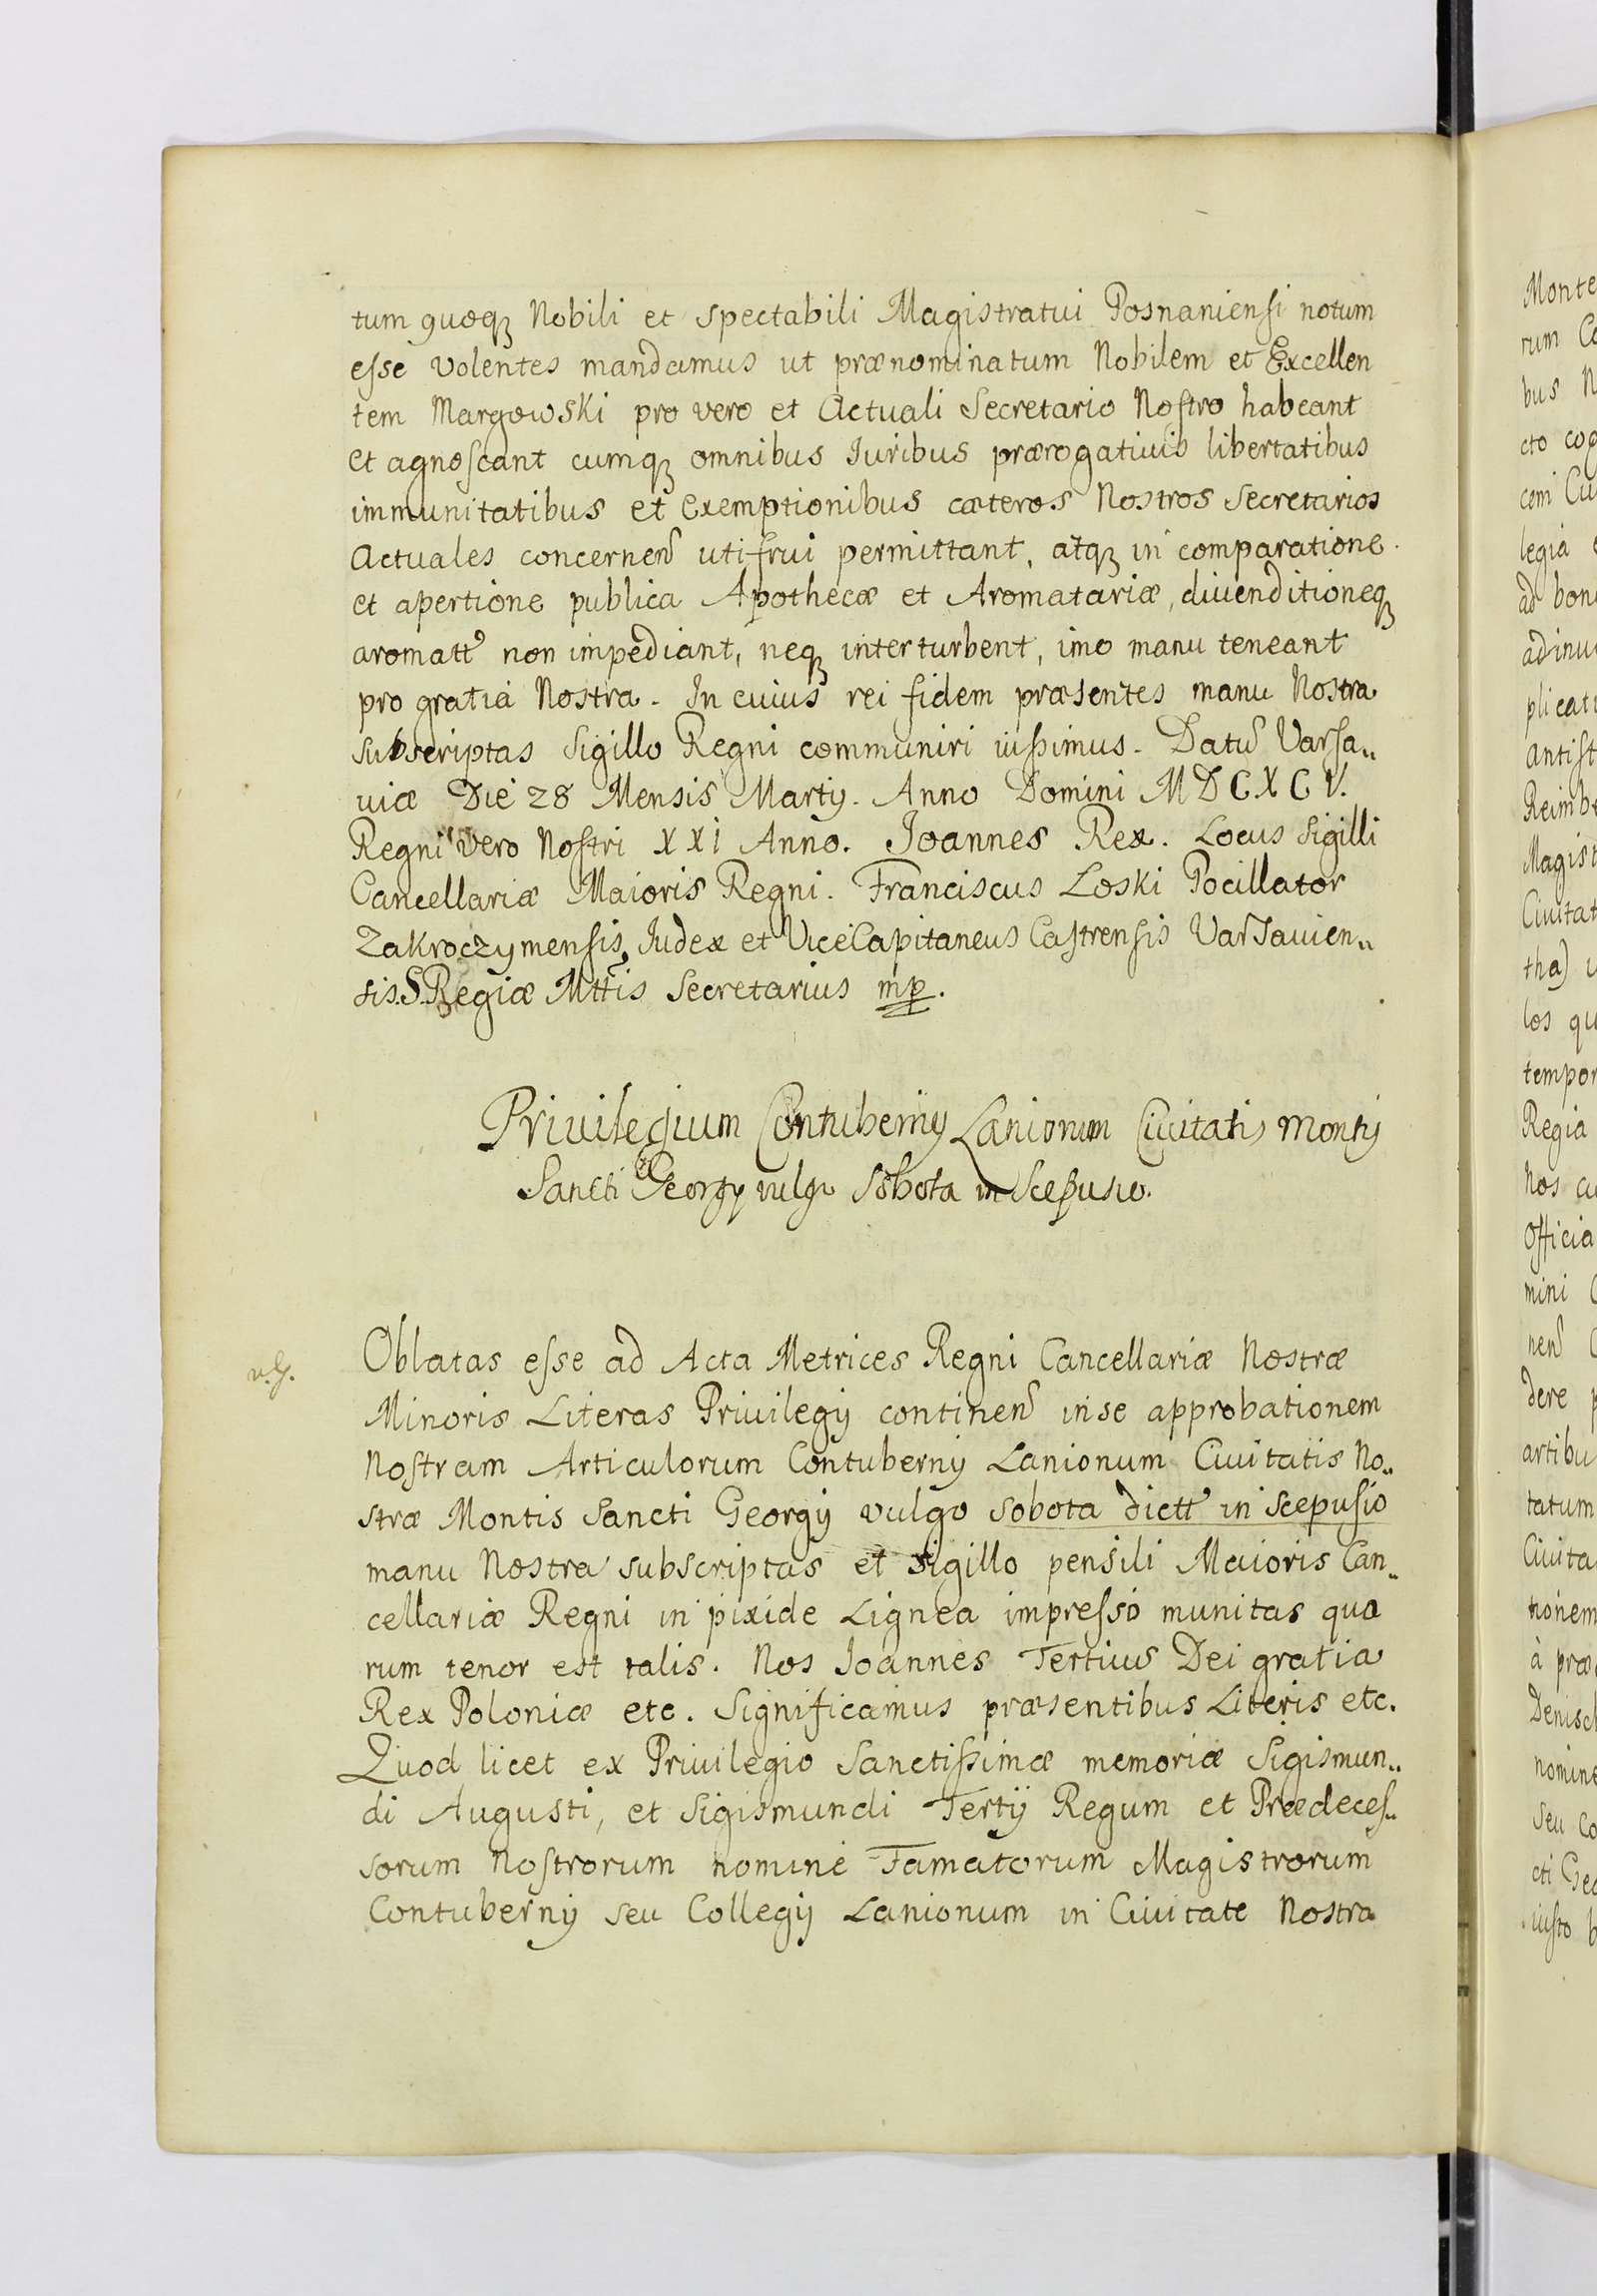 tum quoqꝫ Nobili et spectabili Magistratui Posnaniensi notum
esse volentes mandamus ut prænominatum Nobilem et Excellen
tem Margowski pro vero et Actuali Secretario Nostro habeant
et agnoscant cumqꝫ omnibus Iuribus prærogativis libertatibus
immunitatibus et exemptionibus cæteros Nostros Secretarios
Actuales concernen̄ uti frui permittant, atqꝫ in comparatione
et apertione publica Apothecæ et Aromatariæ, diuenditioneqꝫ
aromatt̄ non impediant, neqꝫ interturbent, imo manu teneant
pro gratia Nostra. In cuius rei fidem præsentes manu Nostra
subscriptas Sigillo Regni communiri iussimus. Datū Varsa„
uiæ Die 28 Mensis Martij. Anno Domini MDCXCV.
Regni vero Nostri XXI Anno. Joannes Rex. Locus Sigilli
Cancellariæ Maioris Regni. Franciscus Loski Pocillator
Zakroczymensis, Iudex et ViceCapitaneus Castrensis Varsauien„
sis. S. Regiæ Mttis Secretarius mp.
Priuilegium Contubernij Lanionum Ciuitatis Montis
Sancti Georgy vulgo Sobota in Scepusio.
Oblatas esse ad Acta Metrices Regni Cancellariæ Nostræ
Minoris Literas Priuilegij continen̄ in se approbationem
Nostram Articulorum Contubernij Lanionum Ciuitatis No„
stræ Montis Sancti Georgij vulgo Sobota dictt̄ in Scepusio
manu Nostra subscriptas et sigillo pensili Maioris Can„
cellariæ Regni in pixide Lignea impresso munitas quo
rum tenor est talis. Nos Joannes Tertius Dei gratia
Rex Poloniæ etc. Significamus præsentibus Literis etc.
Quod licet ex Priuilegio Sanctissimæ memoriæ Sigismun„
di Augusti, et Sigismundi Tertij Regum et Prædeces„
sorum Nostrorum nomine Famatorum Magistrorum
Contubernij seu Collegij Lanionum in Ciuitate Nostra